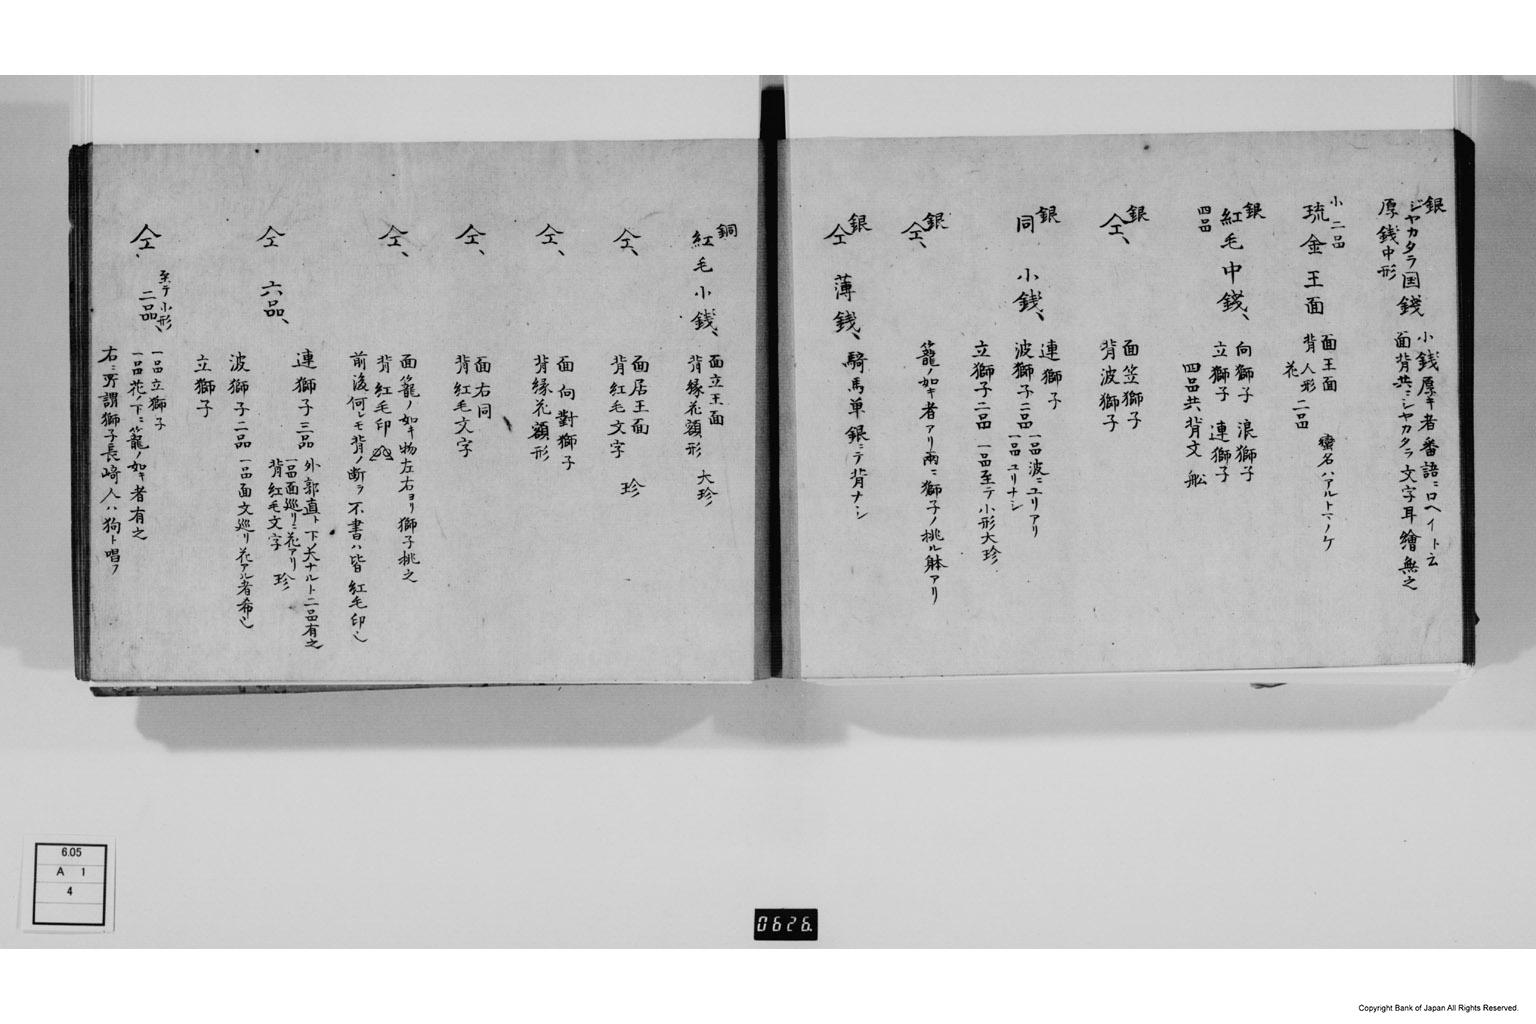 銀
ジヤカタラ国錢
厚錢中形
小錢厚キ者番語ニロヘイト云
面背共ニシヤカタラ文字耳繪無之
小二品
琉金王面
面王面
背人形二品
花
蛮名ハアルトマノケ
銀
紅毛中錢、
四品
向獅子 浪獅子
立獅子 連獅子
四品共背文舩
銀
仝、
面笠獅子
背波獅子
銀
同 小錢、
連獅子
波獅子二品
一品波ニユリアリ
一品ユリナシ
立獅子二品 一品至テ小形大珍
銀
仝、
籠ノ如キ者アリ両ニ獅子ノ桃ル躰アリ
銀
仝 薄錢、
騎馬单銀ニテ背ナシ
銅
紅毛小錢、
面立王面
背縁花額形 大珍
仝、
面居王面
背紅毛文字 珍
仝、
面向對獅子
背縁花額形
仝、
面右同
背紅毛文字
仝、
面籠ノ如キ物左右ヨリ獅子桃之
背紅毛印
前後何レモ背ノ断ラ不書ハ皆紅毛印也
仝 六品、
連獅子三品
外郭直ト下大ナルト二品有之
一品面巡リニ花アリ
背紅毛文字 珍
波獅子二品 一品面文巡リ花アル者希也
立獅子
仝、
至テ小形
二品、
一品立獅子
一品花ノ下ニ籠ノ如キ者有之
右ニ所謂獅子長崎人ハ狗ト唱フ
6.05
A 1
4
0626.
Copyright Bank of Japan All Rights Reserved.